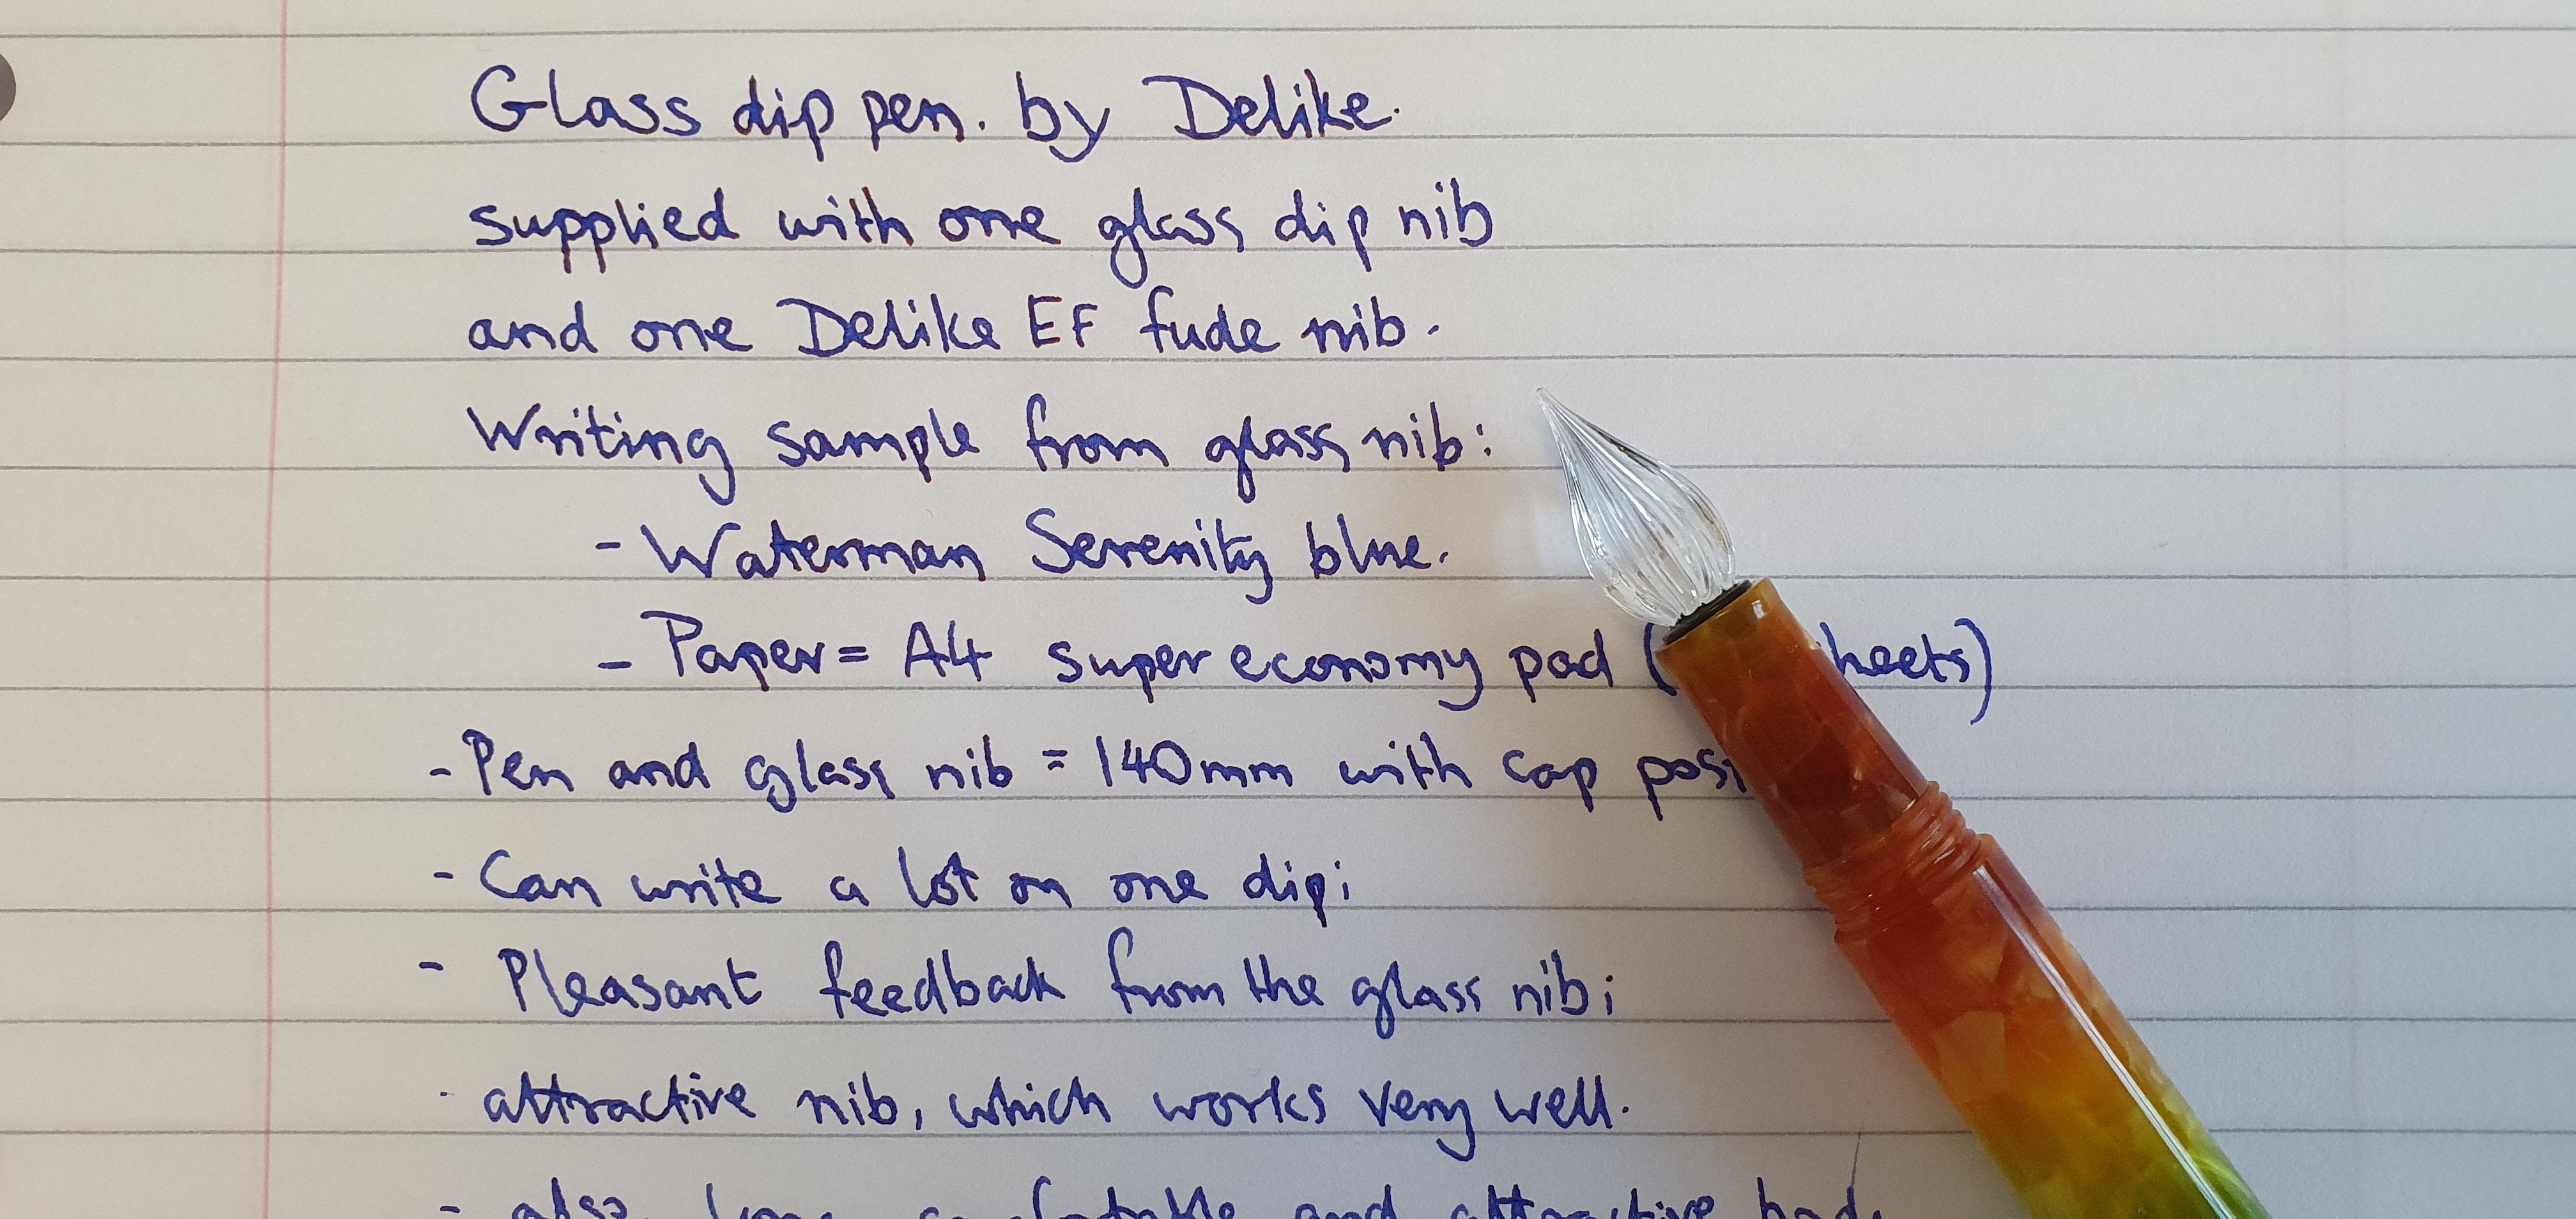 Glass dip pen. by Delike.
supplied with one glass dip nib
and one Delike EF fude nib.
Writing sample from glass nib:
- Waterman Serenity blue.
- Paper = A4 super economy pad ( heets)
- Pen and glass nib = 140mm with cap pos
- Can write a lot on one dip;
- Pleasant feedback from the glass nib;
- attractive nib, which works very well.
- also and attractive